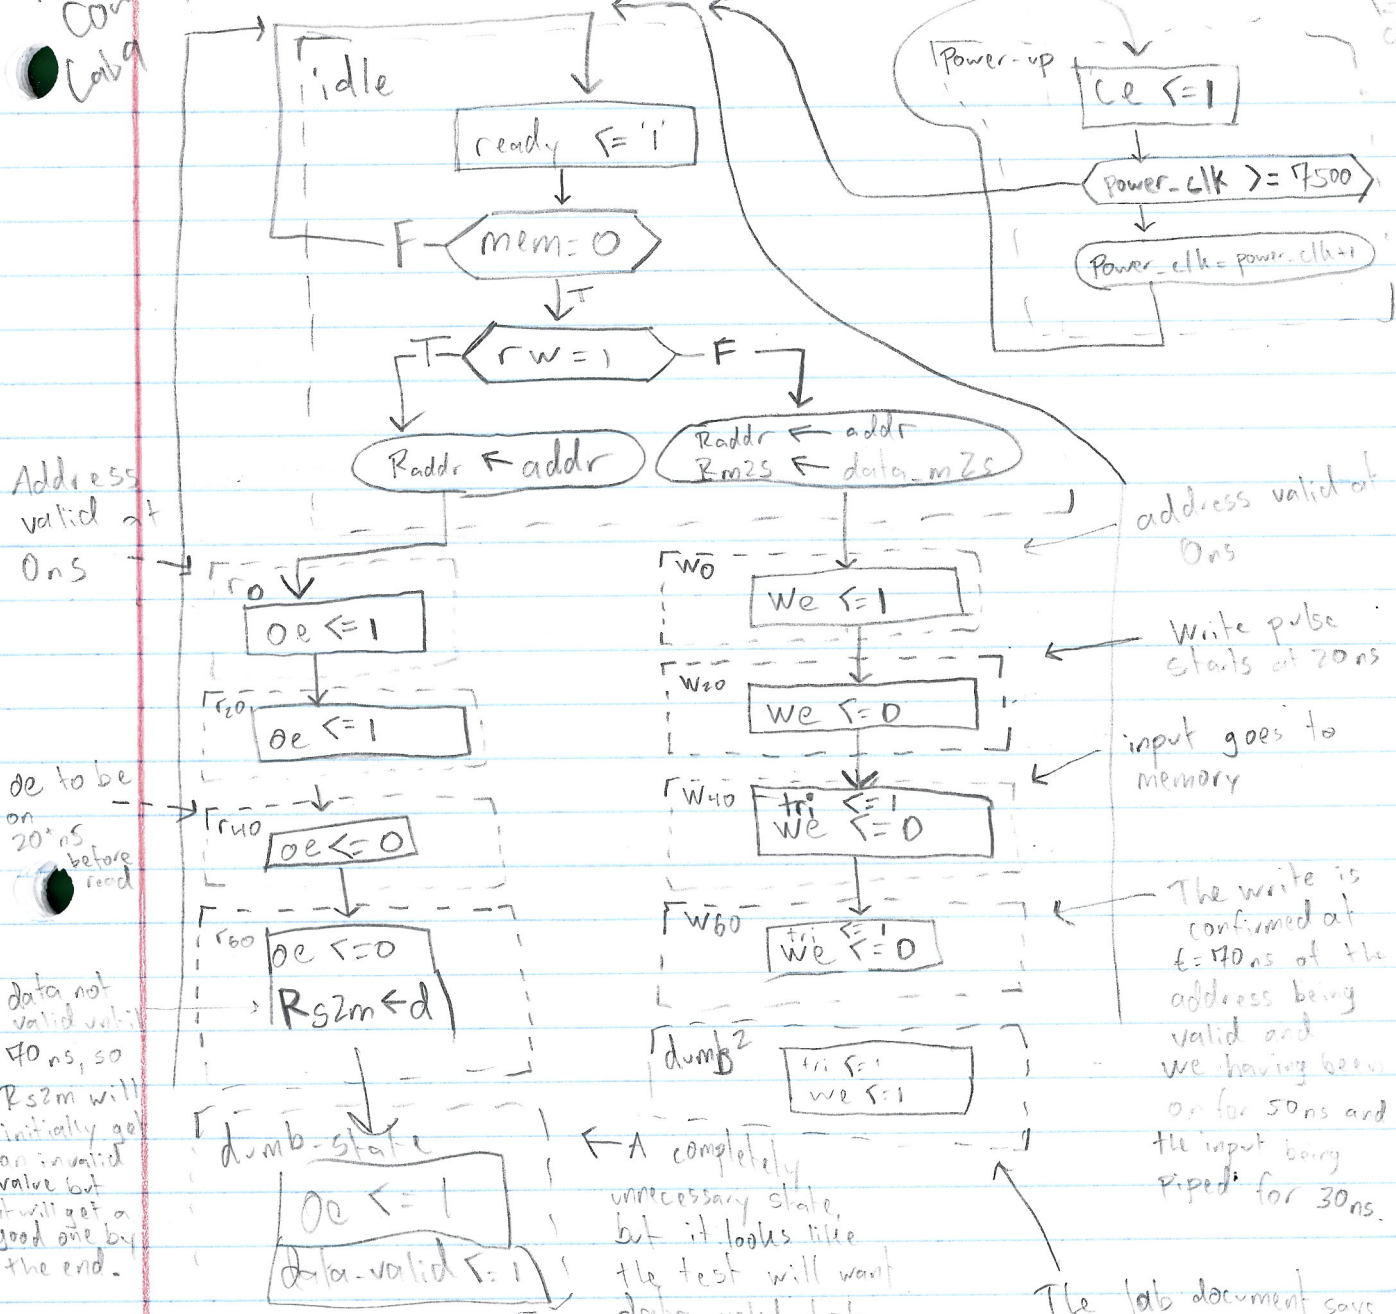 Lab 9
idle
ready <= '1'
mem=0
F
T
rw=1
T
F
Raddr ← addr
Raddr ← addr
Rm2s ← data_m2s
Power-up
ce <= 1
power_clk >= 7500
Power_clk = power_clk+1
Address
valid at
0ns
r0
oe <= 1
r20
oe <= 1
oe to be
on
20 ns
before
read
r40
oe <= 0
r60
oe <= 0
Rs2m ← d
data not
valid until
70 ns, so
Rs2m will
initially get
an invalid
value but
it will get a
good one by
the end.
dumb-state
oe <= 1
data-valid <= 1
address valid at
0ns
w0
we <= 1
Write pulse
starts at 20ns
w20
we <= 0
input goes to
memory
w40
tri <= 1
we <= 0
w60
tri <= 1
we <= 0
The write is
confirmed at
t=70ns of the
address being
valid and
we having been
on for 50ns and
the input being
piped for 30ns.
dumb2
tri <= 1
we <= 1
A completely
unnecessary state,
but it looks like
the test will want
The lab document says